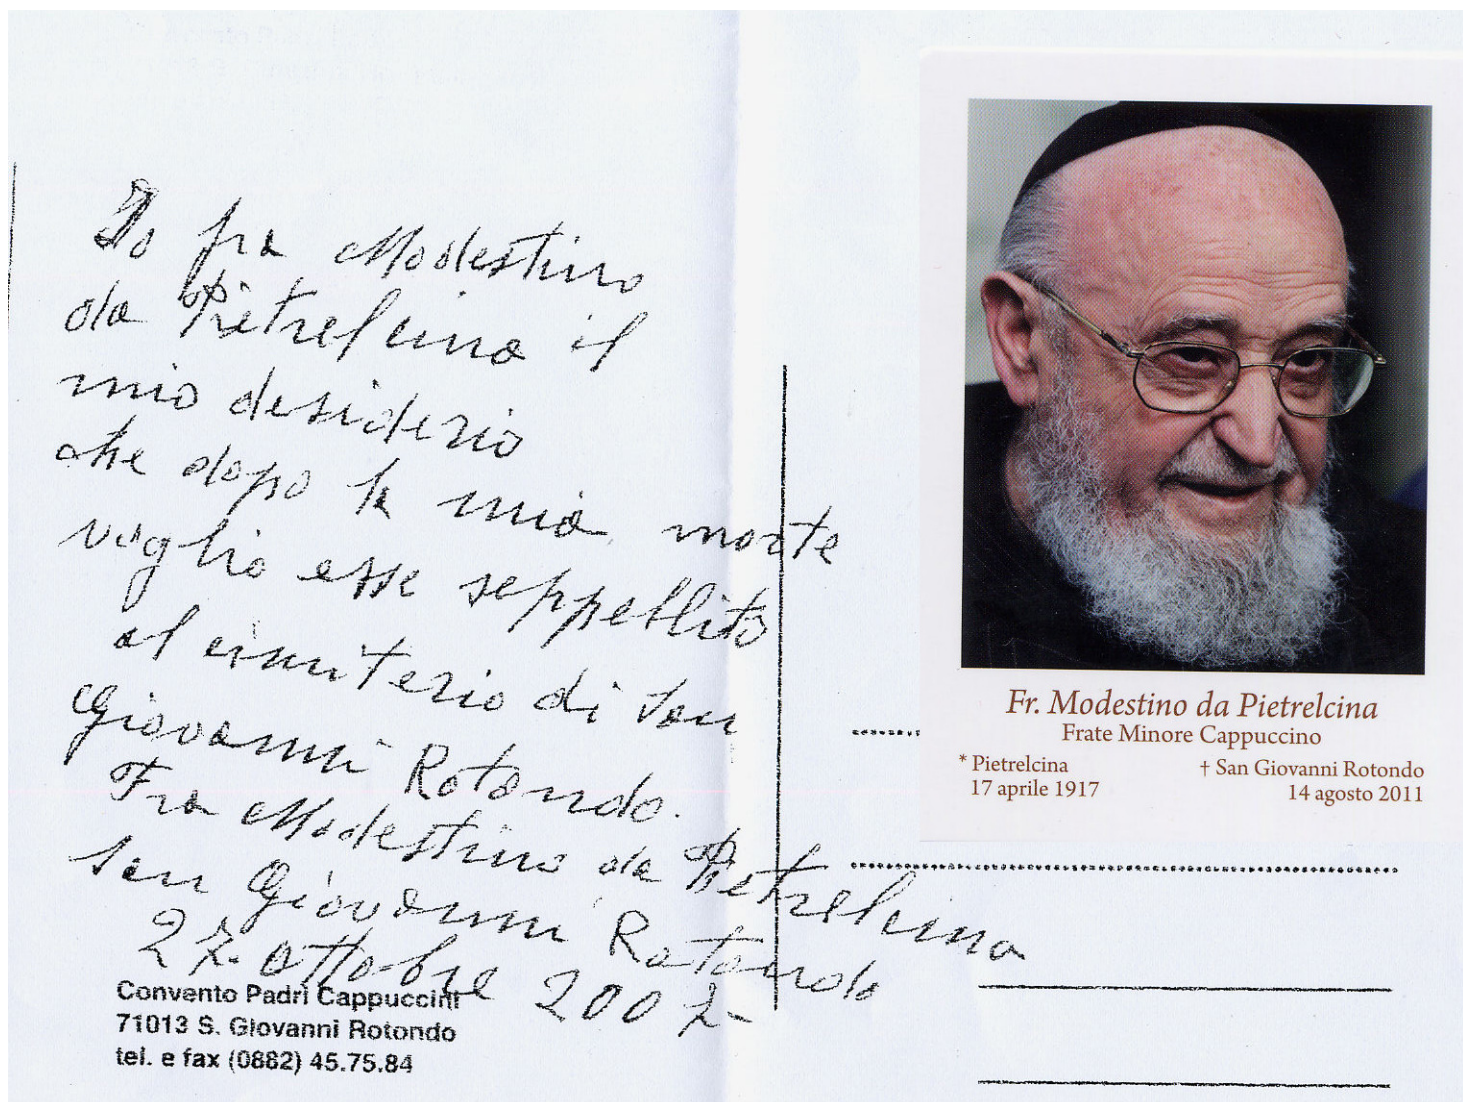 Io fra Modestino
da Pietrelcina il
mio desiderio
che dopo la mia morte
voglio esse seppellito
al cimiterio di San
Giovanni Rotondo.
Fra Modestino da Pietrelcina
San Giovanni Rotondo
27. ottobre 2007-
Convento Padri Cappuccini
71013 S. Giovanni Rotondo
tel. e fax (0882) 45.75.84
Fr. Modestino da Pietrelcina
Frate Minore Cappuccino
* Pietrelcina † San Giovanni Rotondo
17 aprile 1917 14 agosto 2011